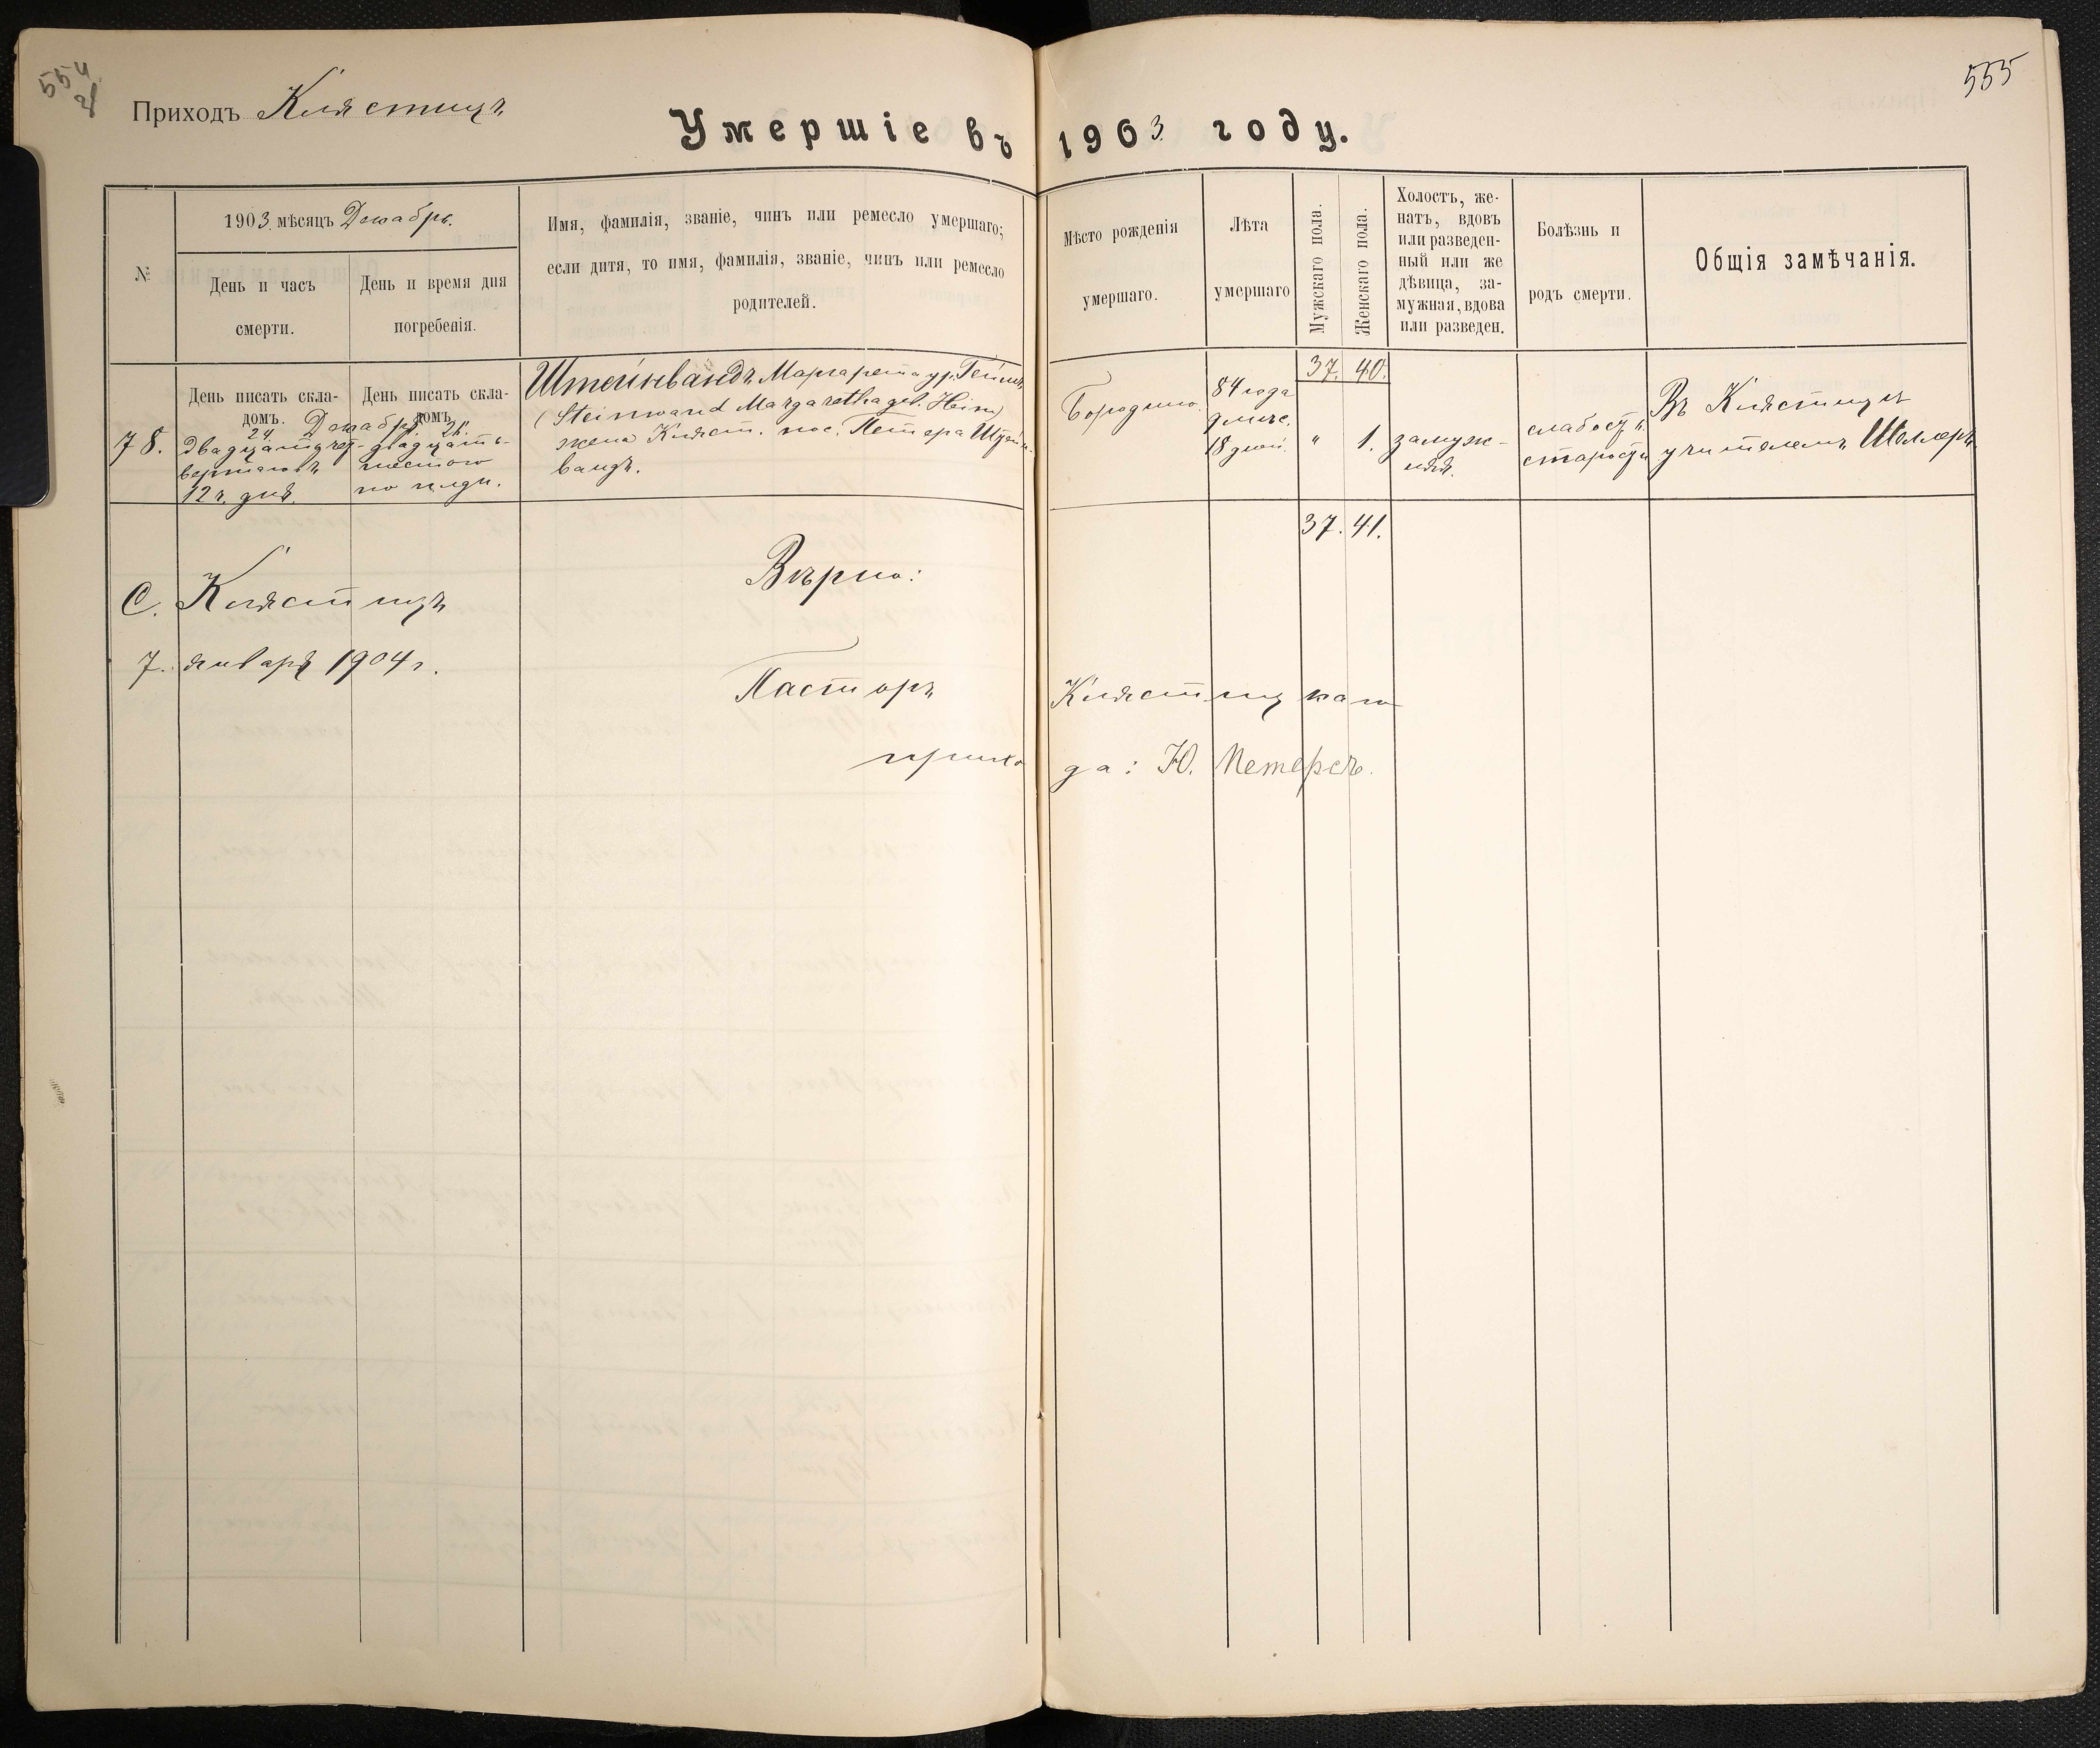 554
об
555
Приходъ Клястицъ
Умершіе въ 1903 году.
№
1903 мѣсяцъ Декабрь.
День и часъ
смерти.
День и время дня
погребенія.
Имя, фамилія, званіе, чинъ или ремесло умершаго;
если дитя, то имя, фамилія, званіе, чинъ или ремесло
родителей.
Мѣсто рожденія
умершаго.
Лѣта
умершаго
Мужскаго пола.
Женскаго пола.
Холостъ, же-
натъ, вдовъ
или разведен-
ный или же
дѣвица, за-
мужная, вдова
или разведен.
Болѣзнь и
родъ смерти.
Общія замѣчанія.
78.
День писать скла-
домъ. Декабря
24.
двадцать чет-
вертаго
12 ч. дня.
День писать скла-
домъ.
26.
двадцать
шестого
по полдн.
Штейнвандъ, Маргарета ур. Геймъ
(Steinwand Margaretha geb. Heim)
жена Клдст. пос. Петера Штейн-
вандъ.
Бородино.
84 года
18 дней.
37. 40.
" 1.
замуж-
няя.
слабость
старости
Въ Клястицѣ
учителемъ Шоллеръ
37. 41.
С. Клястицъ
7. января 1904 г.
Вѣрно:
Пасторъ Клястицкаго
прихода: Ю. Петерсъ.